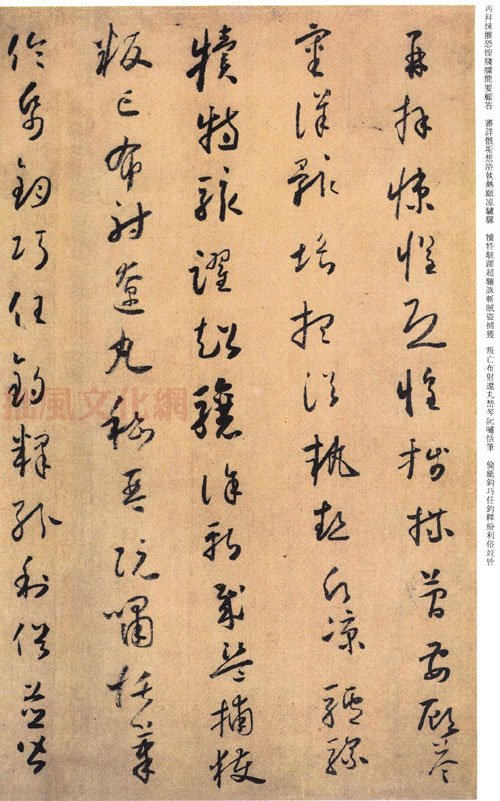 再拜悚懼恐惶牋牒簡要顧答　審詳骸垢想浴執熱願凉驢騾　犢特駭躍超驤誅斬賊盜捕獲　叛亡布射遼丸嵇琴阮嘯恬筆　倫紙鈞巧任釣釋紛利俗竝皆
再拜悚懼恐惶牋牒簡要顧答
審詳骸垢想浴執熱願凉驢騾
犢特駭躍超驤誅斬賊盜捕獲
叛亡布射遼丸嵇琴阮嘯恬筆
倫紙鈞巧任釣釋紛利俗並皆
風文化網